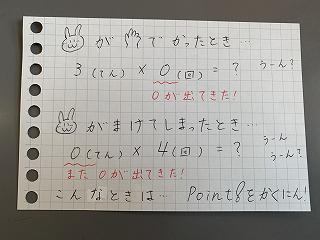 が でかったとき…
3(てん) × 0(回) = ? うーん?
0が出てきた!
がまけてしまったとき…
うーん
0(てん) × 4(回) = ? うーん?
また0が出てきた!
こんなときは… Point⑧をかくにん!